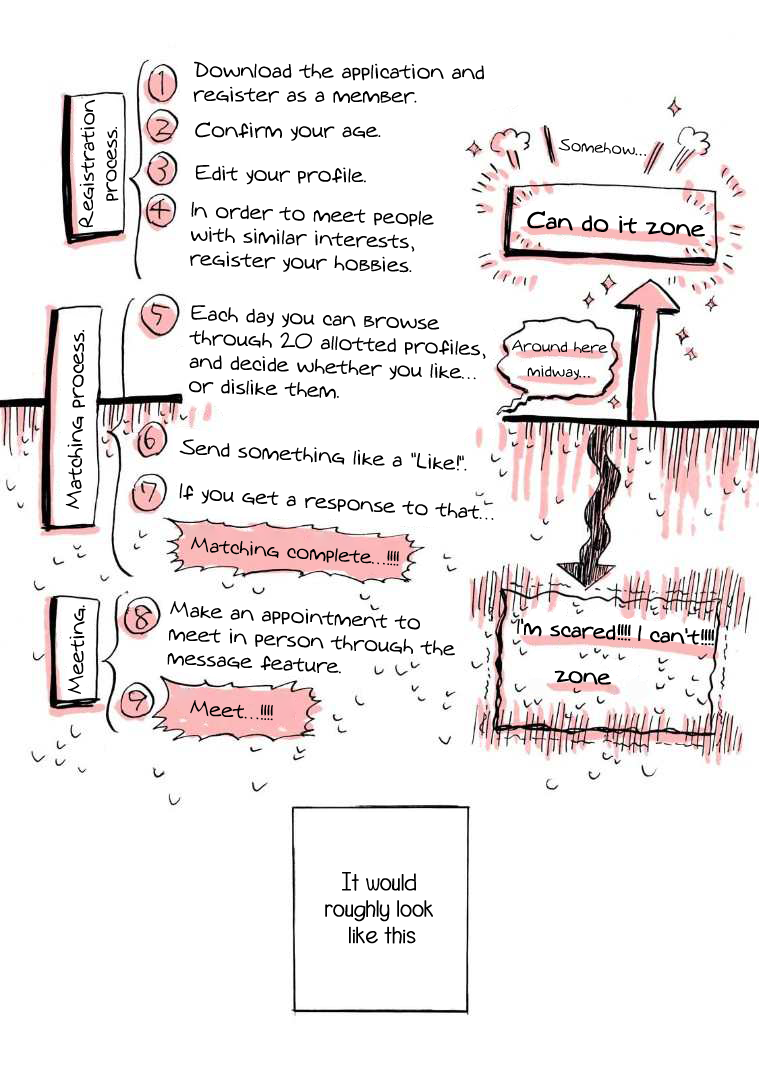 Registration
process.
1
Download the application and
register as a member.
2
Confirm your age.
3
Edit your profile.
4
In order to meet people
with similar interests,
register your hobbies.
Somehow...
Can do it zone
Matching process.
5
Each day you can browse
through 20 allotted profiles,
and decide whether you like...
or dislike them.
Around here
midway...
6
Send something like a "Like!".
7
If you get a response to that...
Matching complete...!!!!
Meeting.
8
Make an appointment to
meet in person through the
message feature.
9
Meet...!!!!
I'm scared!!!! I can't!!!!
zone
It would
roughly look
like this